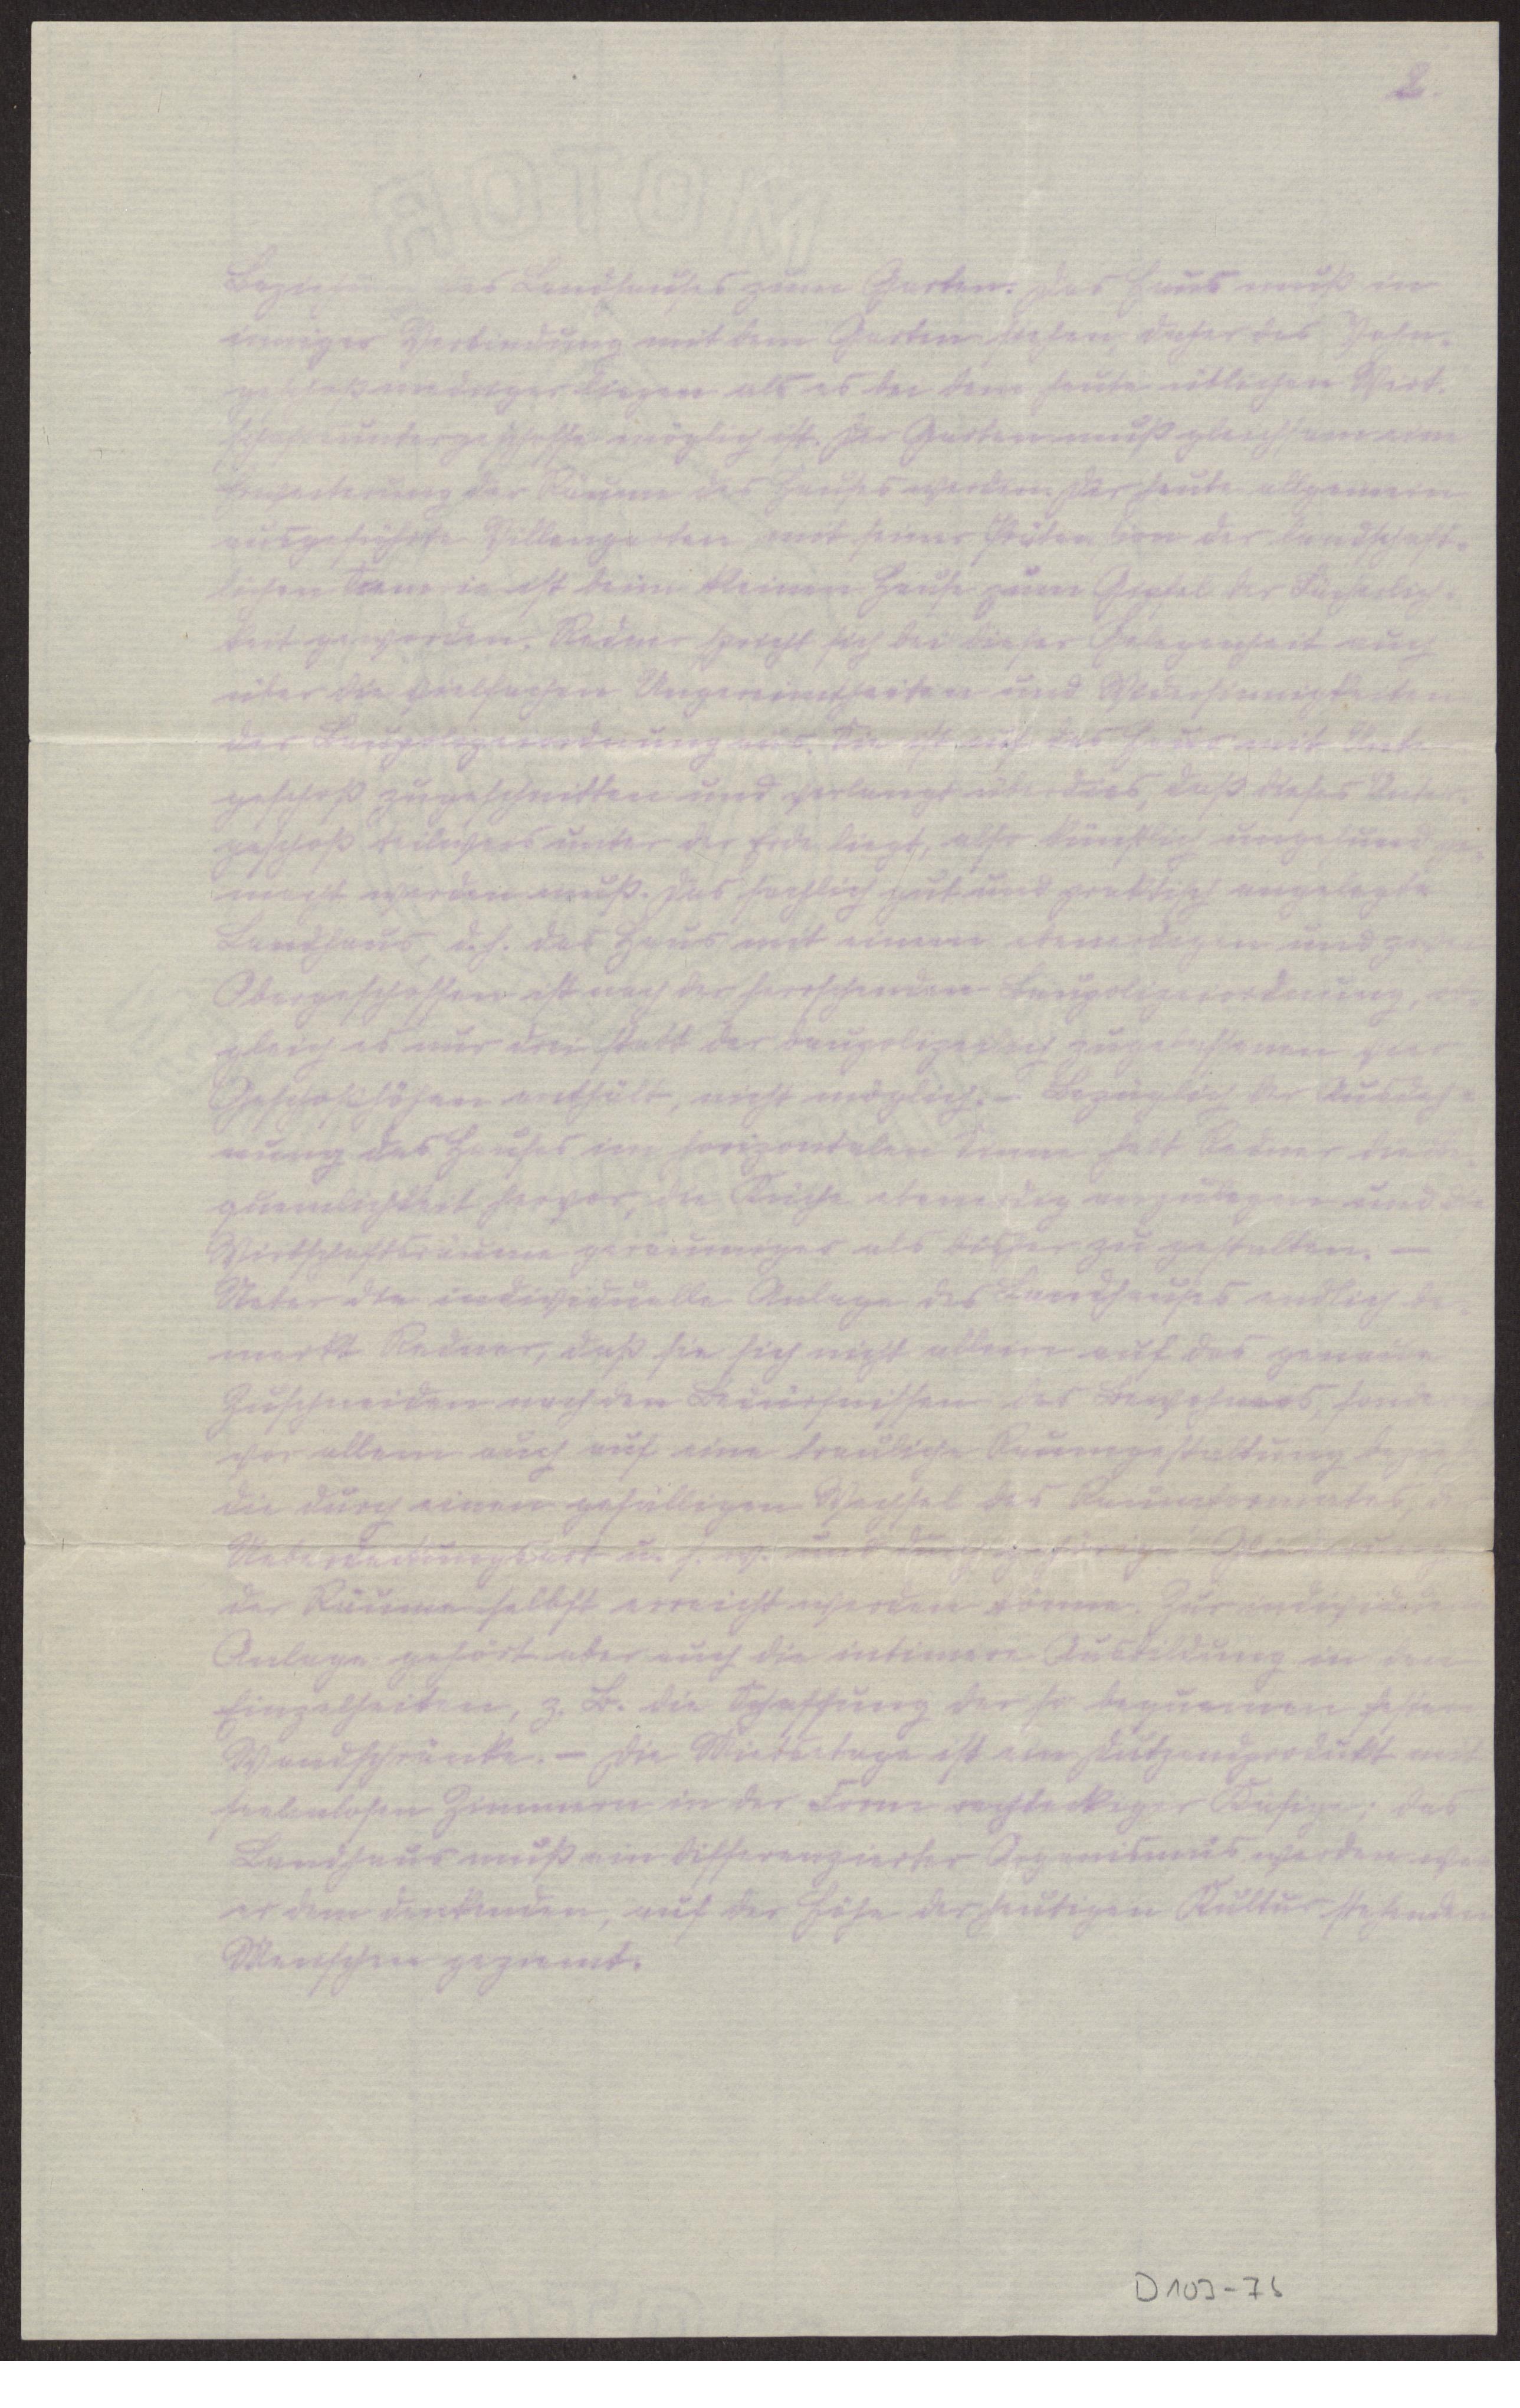 2.
MOTOR
Bezieh es Landhauses zum Garten. Das Haus muß in
inniger Verbindung mit dem Garten stehen, daher das Wohn-
geschoß niedriger liegen als es bei dem heute üblichen Wirt-
schaftsuntergeschosse möglich ist. Der Garten muß gleichsam eine
Erweiterung der Räume des Hauses werden. Der heute allgemein
ausgeführte Villengarten mit seiner Prätention der landschaft-
lichen ist beim kleinen Hause zum Gipfel der Lächerlich-
keit geworden. Redner spricht sich bei dieser Gelegenheit auch
über die vielfachen Ungereimtheiten und Widersinnigkeiten
der Baupolizeiordnung aus. Sie ist auf das Haus mit Unter
geschoß zugeschnitten und verlangt überdies, daß dieses Unter-
geschoß teilweis unter der Erde liegt, also künstlich ungesund ge-
macht werden muß. Das sachlich gut und praktisch angelegte
Landhaus, d. h. das Haus mit einem ebenerdigen und zwei
Obergeschossen ist nach der herrschenden Baupolizeiordnung, ob-
gleich es nur drei statt der baupolizeilich zugelassenen vier
Geschoßhöhen enthält, nicht möglich. – Bezüglich der Ausdeh-
nung des Hauses im horizontalen Sinne hebt Redner die Be-
quemlichkeit hervor, die Küche ebenerdig anzulegen und die
Wirtschaftsräume geräumiger als bisher zu gestalten. –
Ueber die individuelle Anlage des Landhauses endlich be-
merkt Redner, daß sie sich nicht allein auf das genaue
Zuschneiden nach den Bedürfnissen des Bewohners, sondern
vor allem auch auf eine trauliche Raumgestaltung bezieht
die durch einen gefälligen Wechsel des Raumformates, d
Ueberdeckungsart u. s. w. und durch gehörige
der Räume selbst erreicht werden könne. Zur individuellen
Anlage gehört aber auch die intimere Ausbildung in den
Einzelheiten, z. B. die Schaffung der so bequemen festen
Wandschränke. – Die Mietetage ist ein Dutzendprodukt mit
seelenlosen Zimmern in der Form rechteckiger Käfige; das
Landhaus muß ein differenzierter Organismus werden wie
er dem denkenden, auf der Höhe der heutigen Kultur stehenden
Menschen geziemt.
D103-76